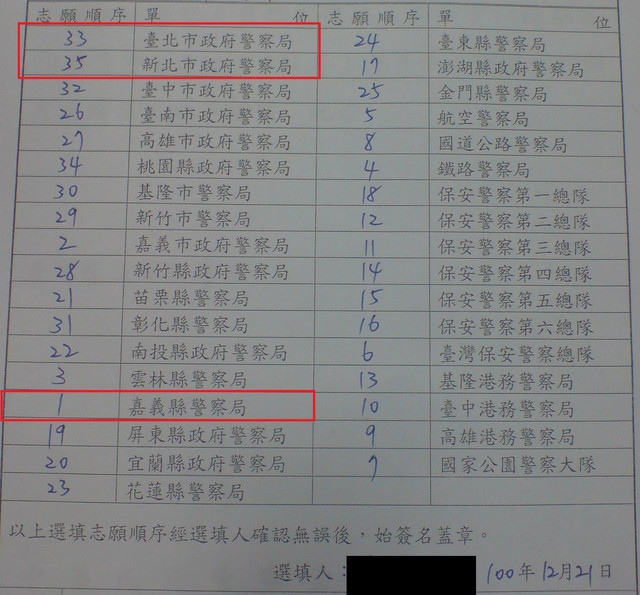 志願順序 單位 志願順序 單位
33 臺北市政府警察局 24 臺東縣警察局
35 新北市政府警察局 17 澎湖縣政府警察局
32 臺中市政府警察局 25 金門縣警察局
26 臺南市政府警察局 5 航空警察局
27 高雄市政府警察局 8 國道公路警察局
34 桃園縣政府警察局 4 鐵路警察局
30 基隆市警察局 18 保安警察第一總隊
29 新竹市警察局 12 保安警察第二總隊
2 嘉義市政府警察局 11 保安警察第三總隊
28 新竹縣政府警察局 14 保安警察第四總隊
21 苗栗縣警察局 15 保安警察第五總隊
31 彰化縣警察局 16 保安警察第六總隊
22 南投縣政府警察局 6 臺灣保安警察總隊
3 雲林縣警察局 13 基隆港務警察局
1 嘉義縣警察局 10 臺中港務警察局
19 屏東縣政府警察局 9 高雄港務警察局
20 宜蘭縣政府警察局 7 國家公園警察大隊
23 花蓮縣警察局
以上選填志願順序經選填人確認無誤後，始簽名蓋章。
選填人： 100年12月21日